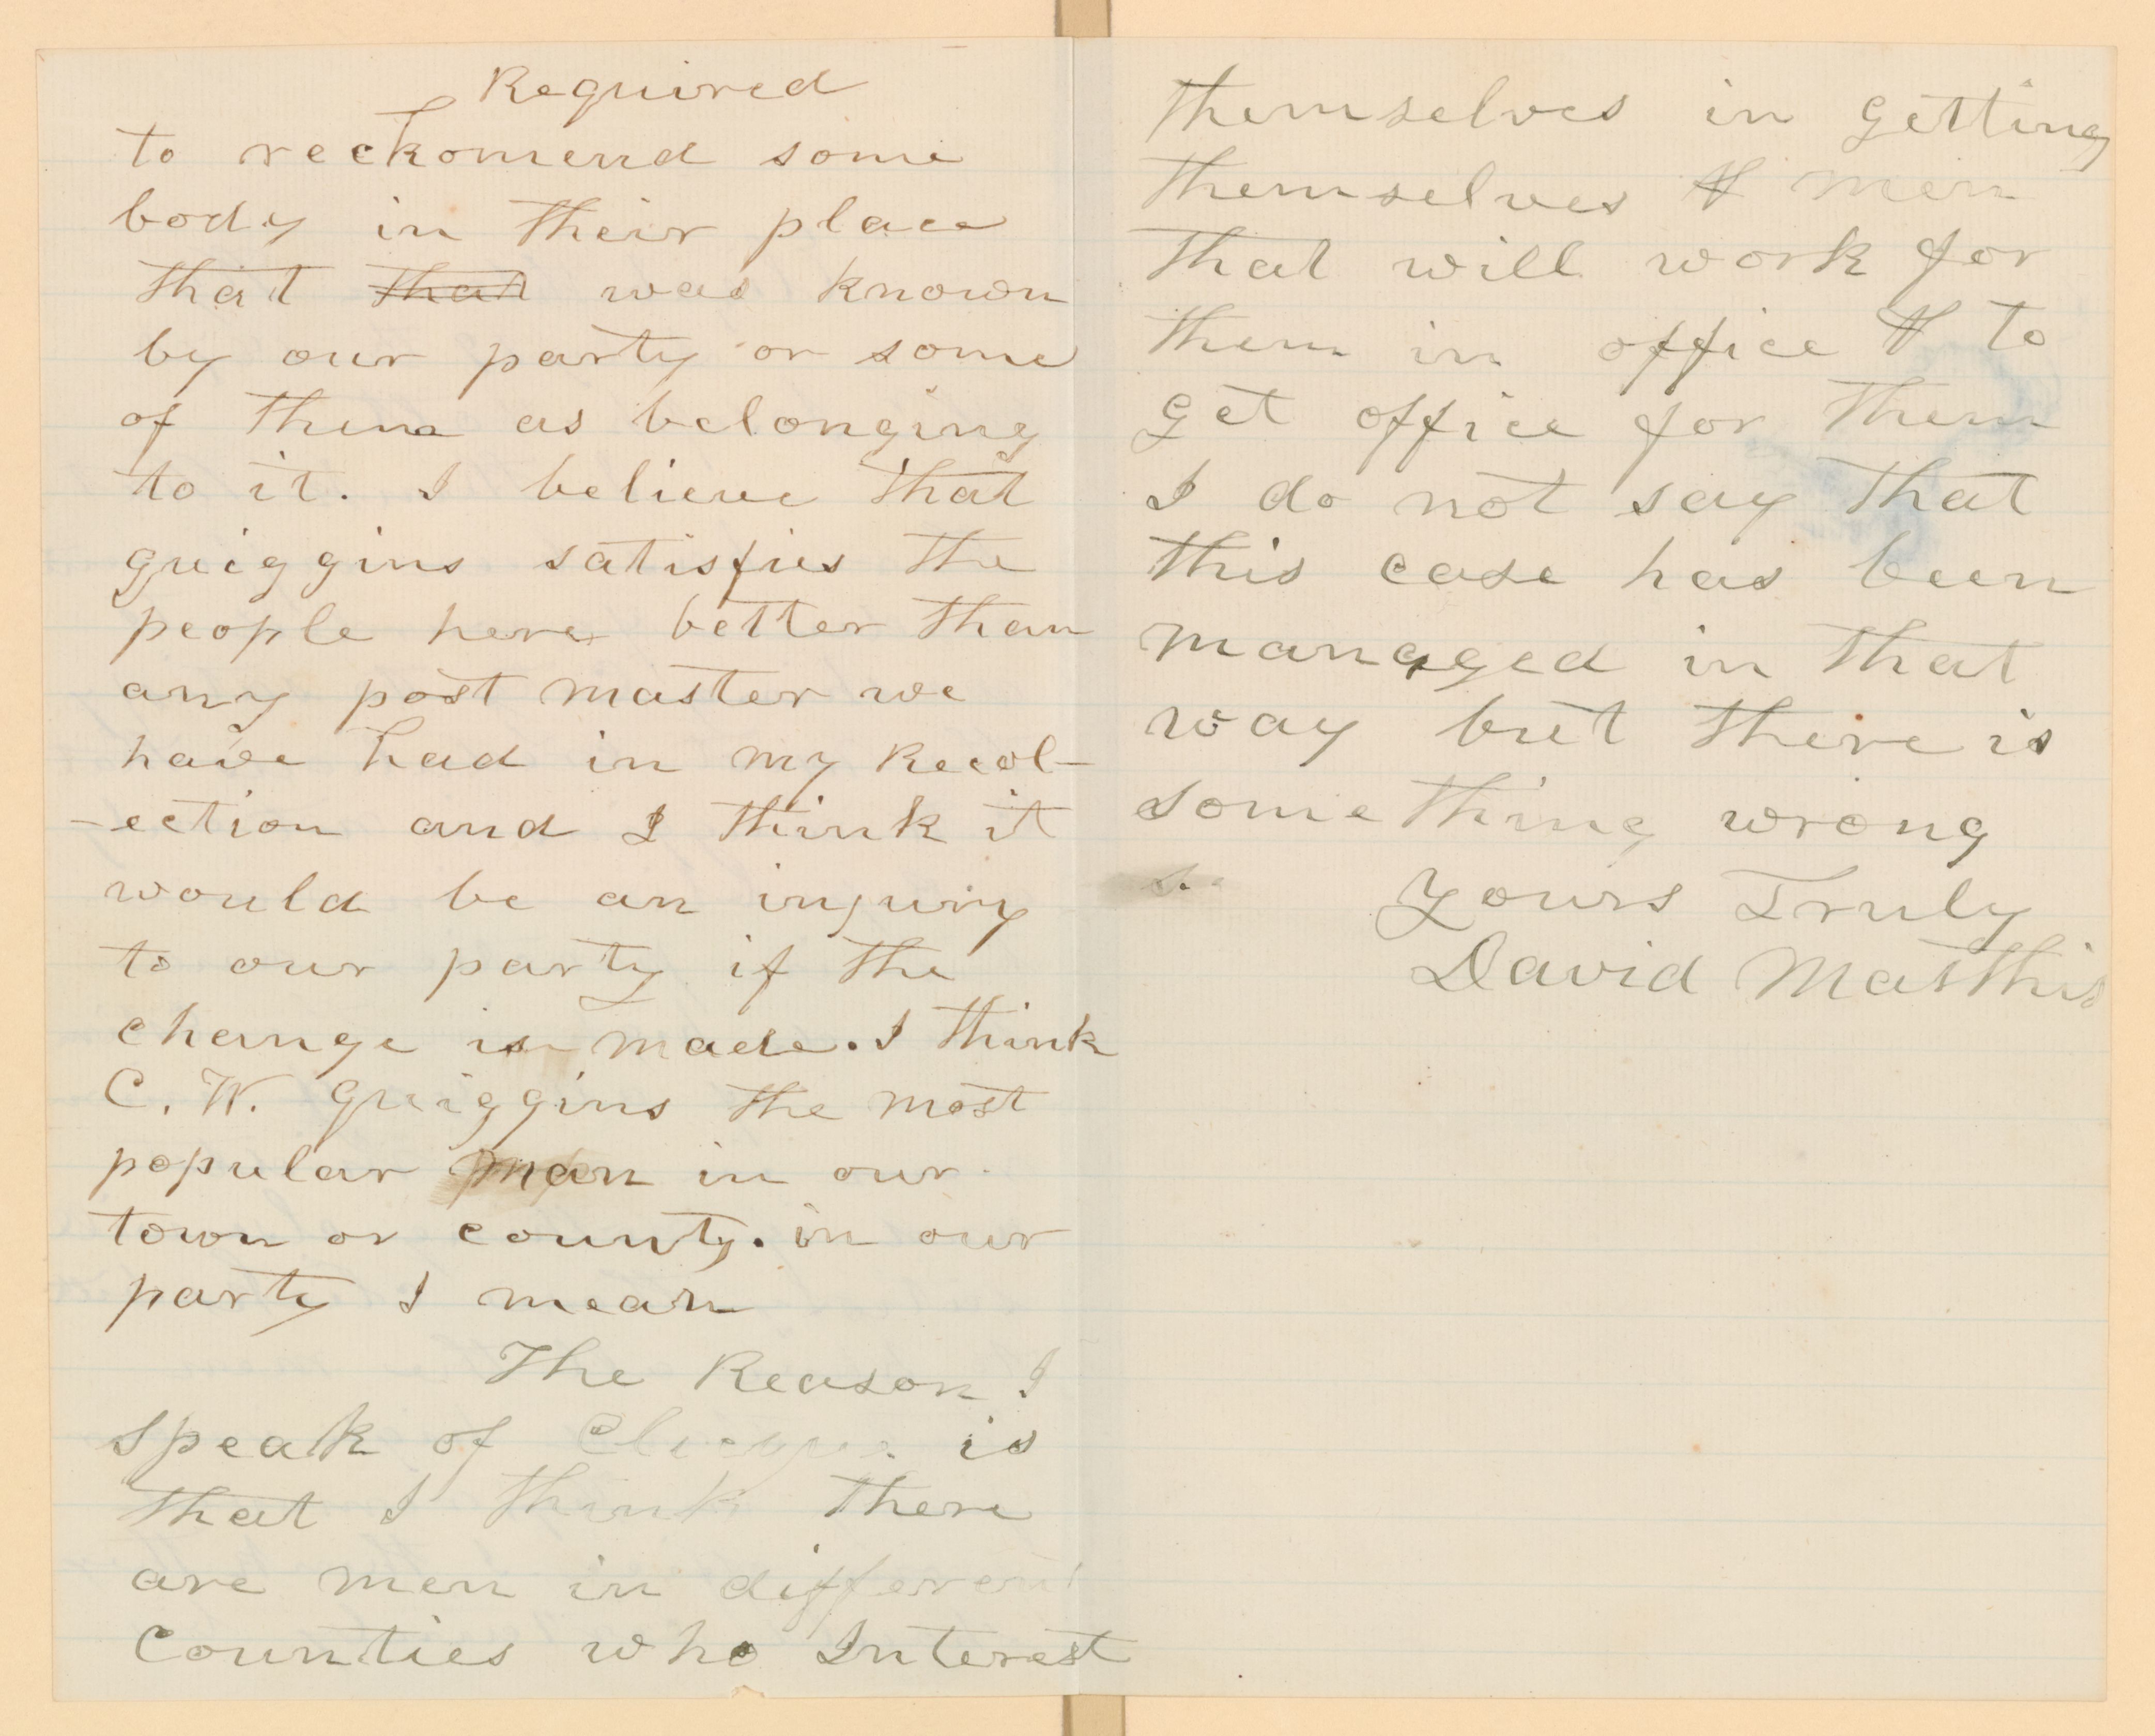 Required
to reckomend some
body in their place
that that was known
by our party or some
of them as belonging
to it. I believe that
quiggins satisfies the
people here better than
any post master we
have had in my Recol-
-ection and I think it
would be an injury
to our party if the
change is made. I think
C. W. quiggins the most
popular man in our
town or county. in our
party I mean
The Reason I
speak of is
that I think there
are men in different
Counties who Interest
themselves in getting
themselves & men
that will work for
them in office & to
get office for them
I do not say that
this case has been
managed in that
way but there is
something wrong
Yours Truly
David Matthis